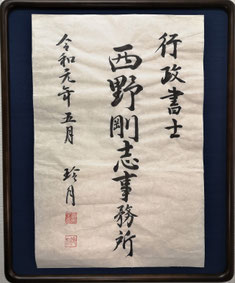 行政書士
西野剛志事務所
令和元年五月
玲月